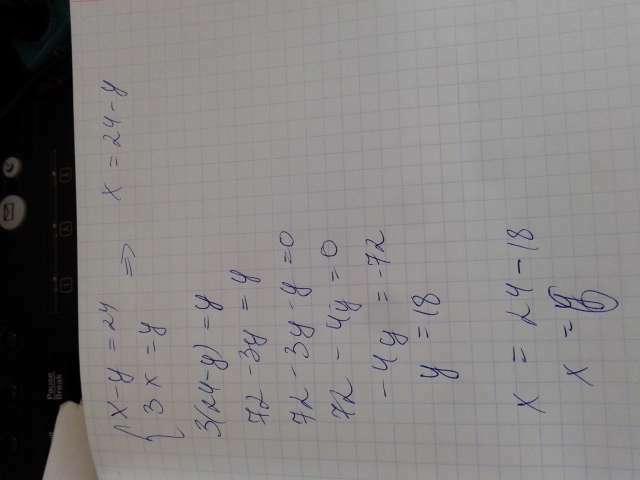 Pause
Break
1 2 3
x - y = 24 ⇒ x = 24 - y
3x = y
3(24 - y) = y
72 - 3y = y
72 - 3y - y = 0
72 - 4y = 0
-4y = -72
y = 18
x = 24 - 18
x =